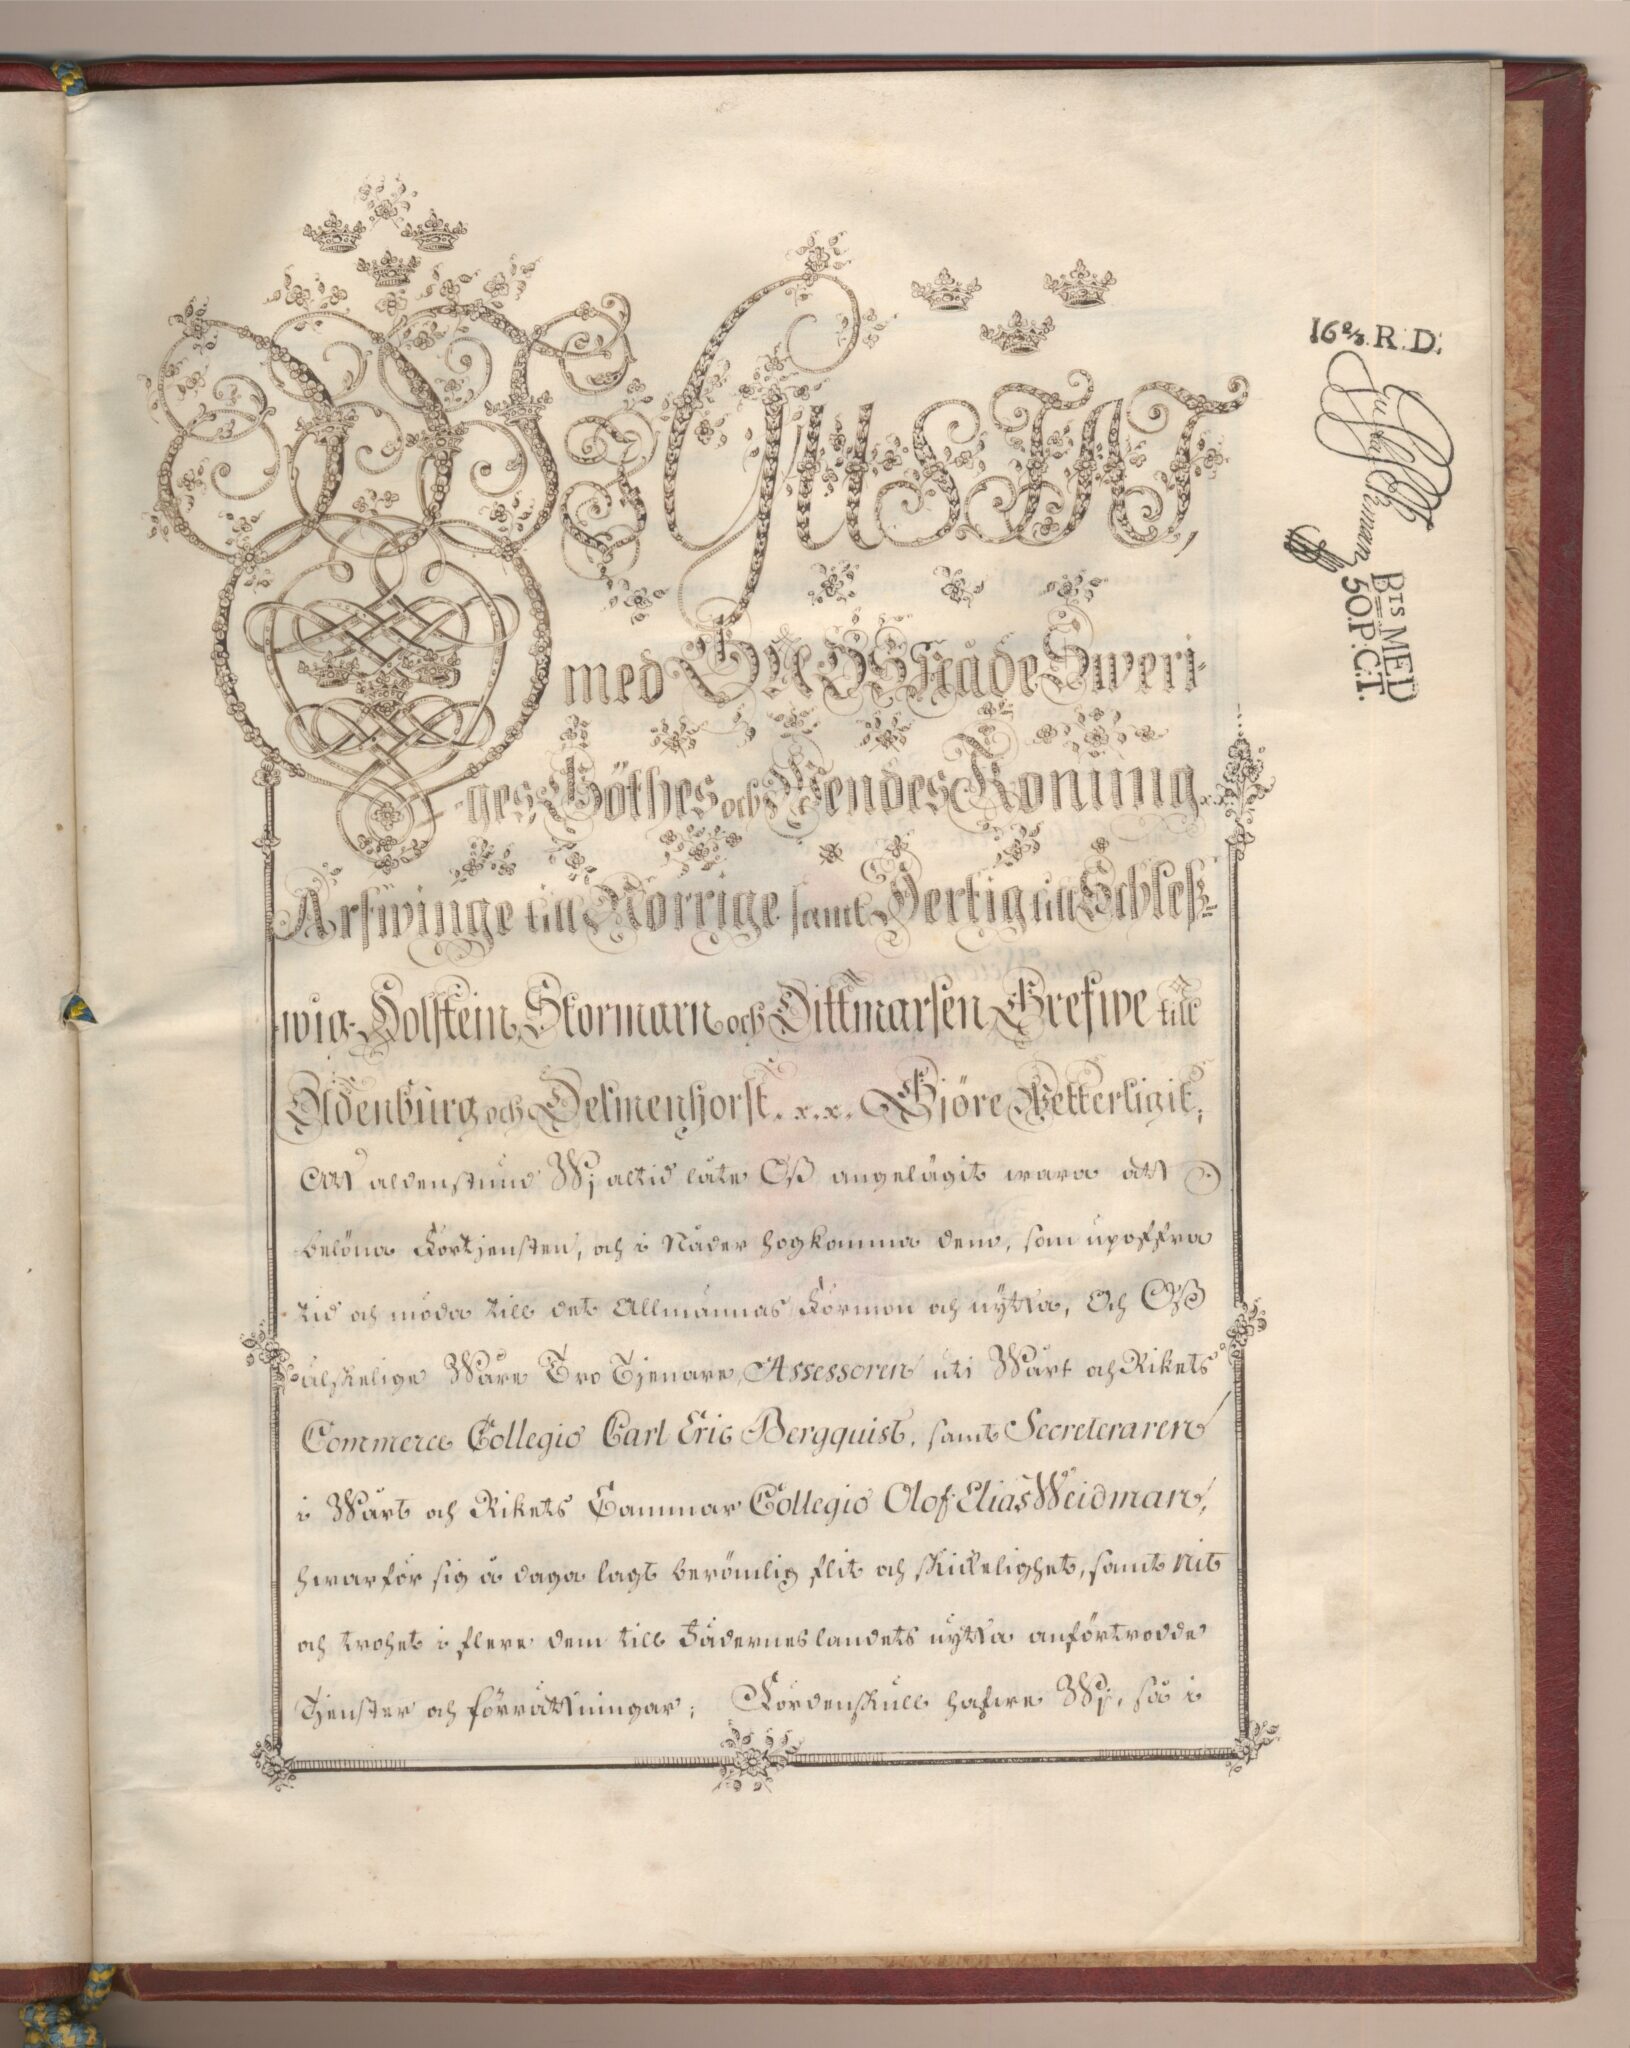 Wi Gustaf,
med Guds Nåde Sweri-
ges Göthes och Wendes Konung x.x.
Arfwinge till Norrige samt Hertig till Schles-
wig-Holstein, Stormarn och Dittmarsen Grefwe till
Oldenburg och Delmenhorst. x.x. Giöre Wetterligit,
Att aldenstund Wj altid låte Oß angelägit wara att
belöna Förtjensten, och i Nåder hogkomma dem, som upoffra
tid och möda till det Allmännas Förmon och nytta, Och Oß
älskelige Wåre Tro Tjenare, Assessoren uti Wårt och Rikets
Commerce Collegio Carl Eric Bergquist, samt Secreteraren
i Wårt och Rikets Cammar Collegio Olof Elias Weidman,
hwar för sig å daga lagt berömlig flit och skickelighet, samt nit
och trohet i flere dem till Fäderneslandets nytta anförtrodde
Tjenster och förrättningar; Fördenskull hafwe Wj, så i
16 2/3. R: D:
Brs MED
50. P. C. T.